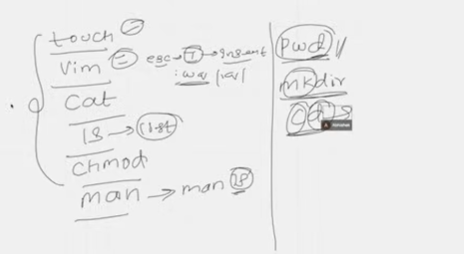 touch
Vim esc → I → insert
:wq
Cat
ls → list
Chmod
man → man ls
pwd
mkdir
cd